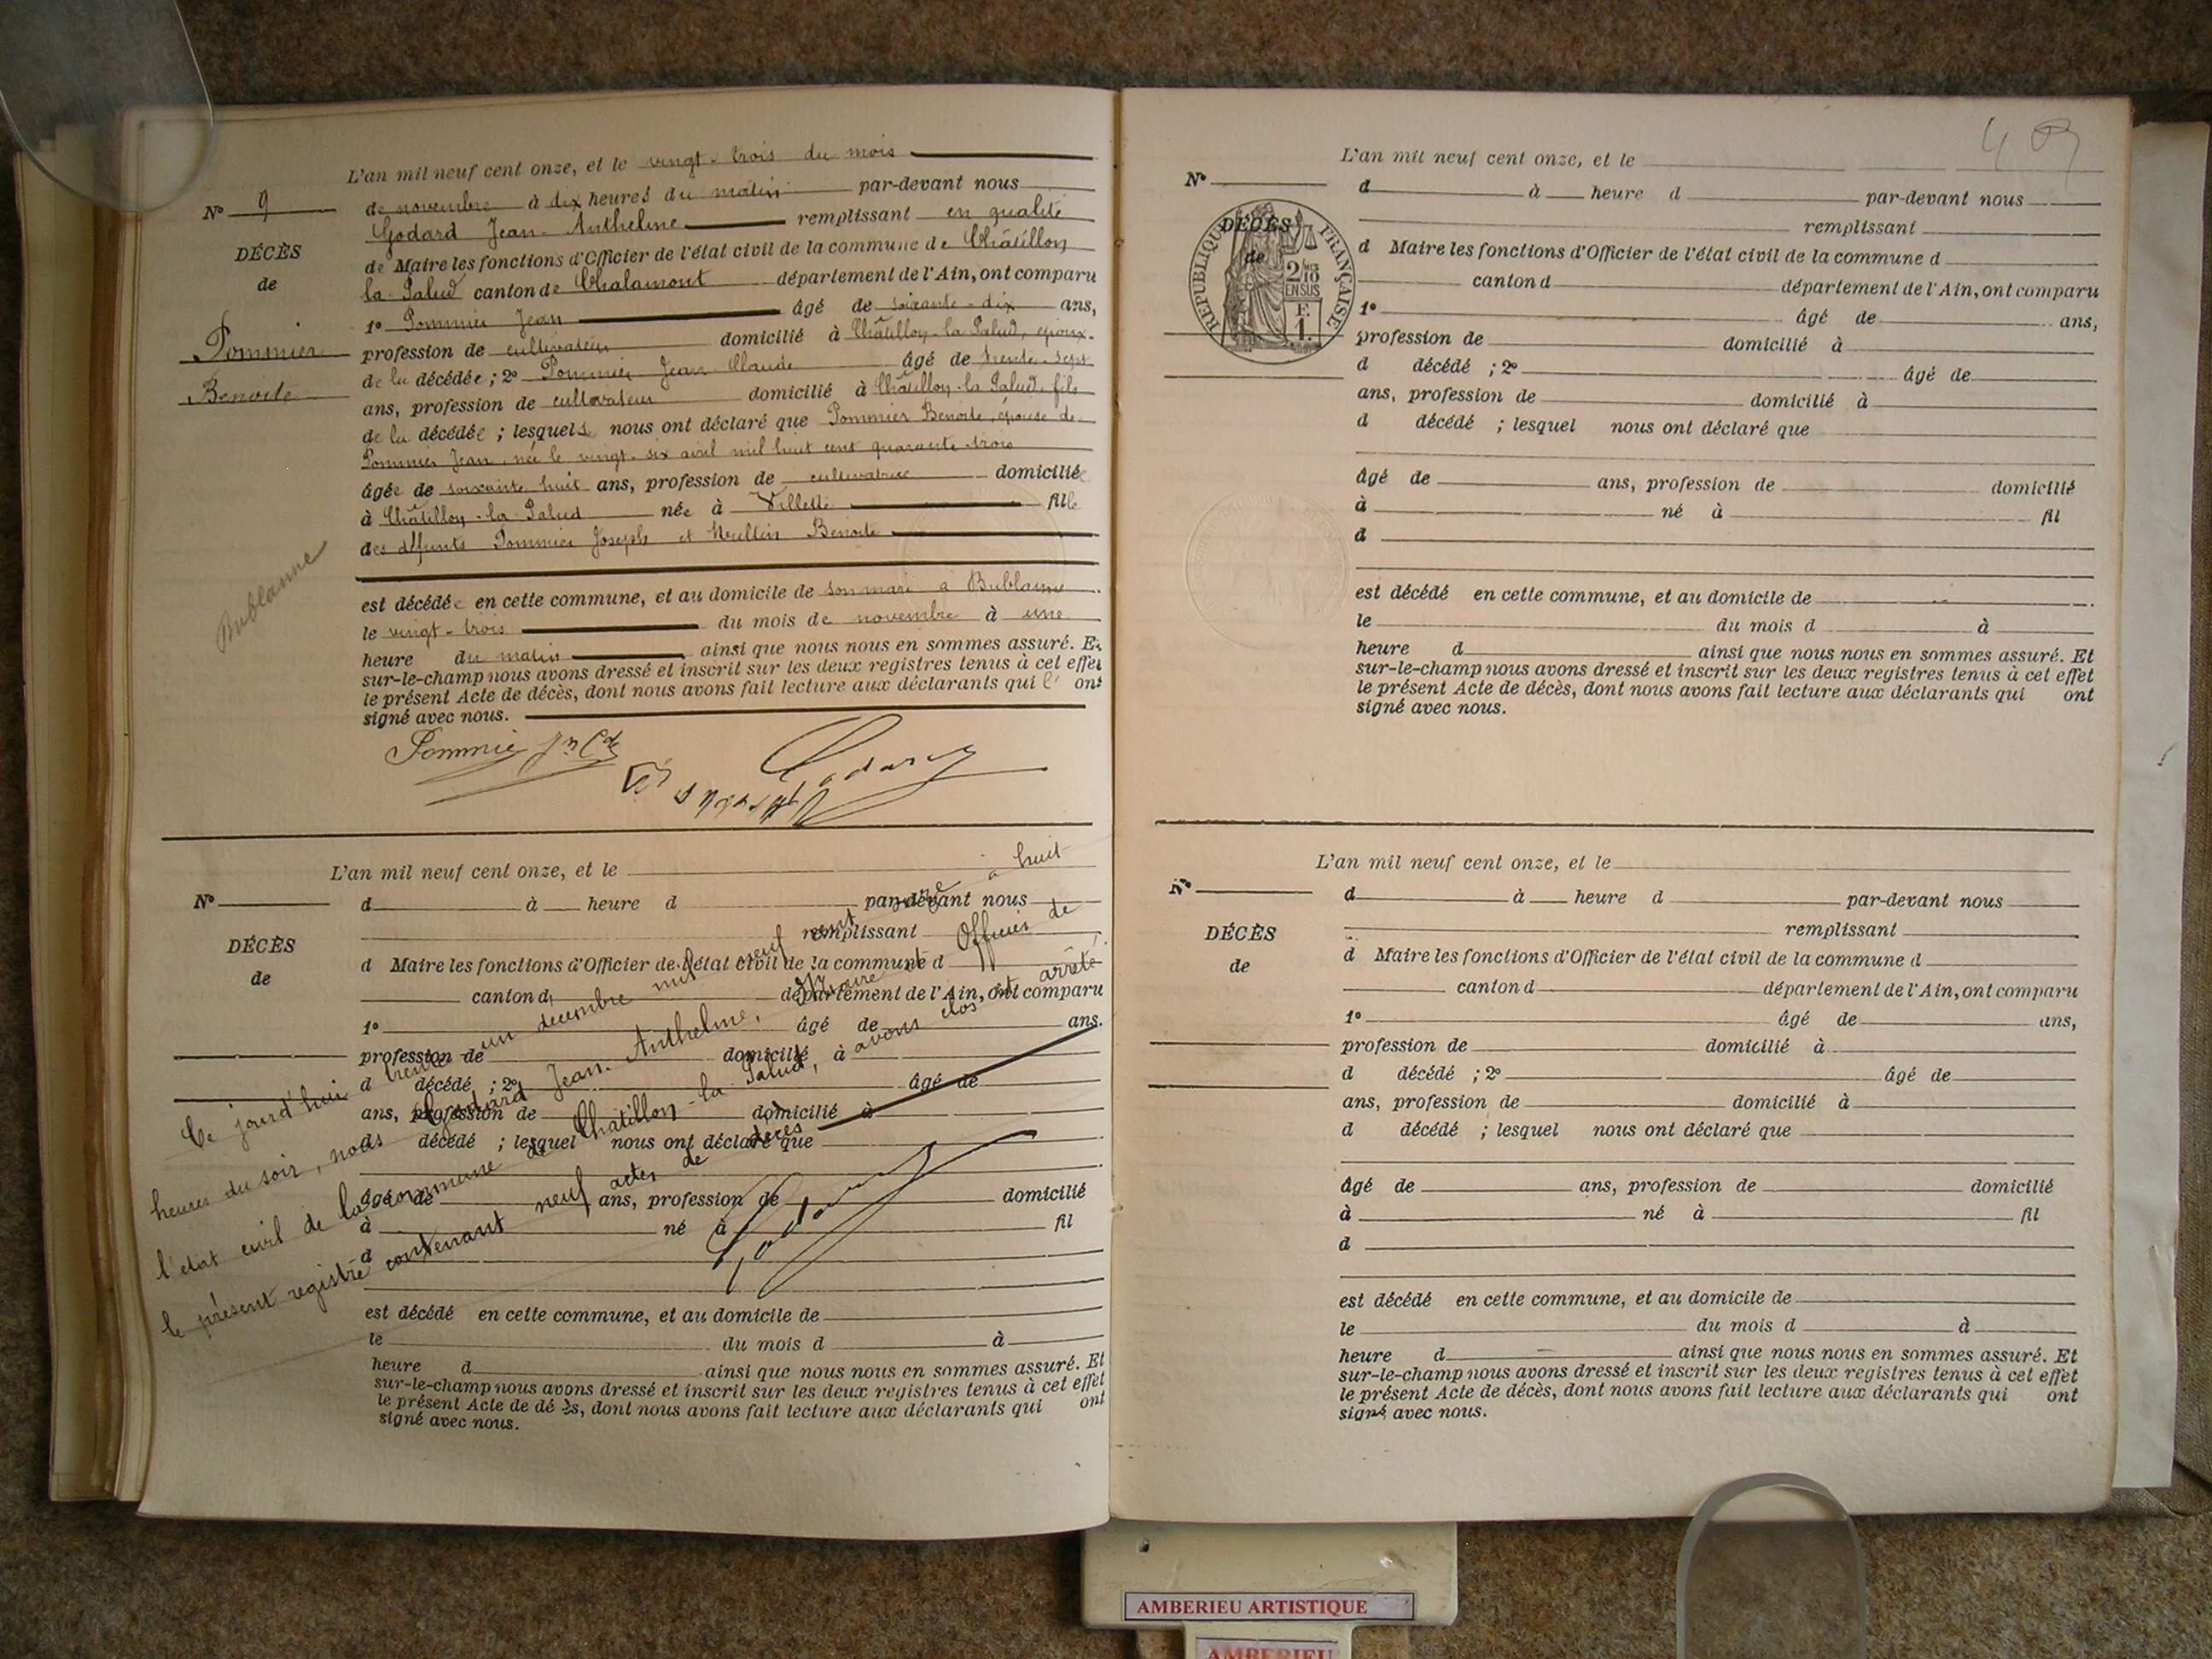 L'an mil neuf cent onze, et le vingt-trois du mois
Nº 9
de novembre à dix heures du matin par-devant nous
Godard Jean-Anthelme remplissant en qualité
DÉCÈS
de Maire les fonctions d'Officier de l'état civil de la commune de Châtillon
de
la-Palud canton de Chalamont département de l'Ain, ont comparu
1º Pommier Jean âgé de soixante-dix ans,
Pommier
profession de cultivateur domicilié à Châtillon-la-Palud, époux
de la décédée ; 2º Pommier Jean Claude âgé de trente-sept
Benoite
ans, profession de cultivateur domicilié à Châtillon-la-Palud, fils
de la décédée ; lesquels nous ont déclaré que Pommier Benoite, épouse de
Pommier Jean, née le vingt-six avril mil huit cent quarante-trois
âgée de soixante huit ans, profession de cultivatrice domiciliée
à Châtillon-la-Palud née à Villette fille
des défunts Pommier Joseph et Benoite
Bublanne
est décédée en cette commune, et au domicile de son mari à Bublanne
le vingt-trois du mois de novembre à une
heure du matin ainsi que nous nous en sommes assuré. Et
sur-le-champ nous avons dressé et inscrit sur les deux registres tenus à cet effet
le présent Acte de décès, dont nous avons fait lecture aux déclarants qui l' ont
signé avec nous.
Pommié Jn Cde
Godard
L'an mil neuf cent onze, et le
Nº
d à heure d par-devant nous
remplissant
DÉCÈS
d Maire les fonctions d'Officier de l'état civil de la commune d
de
canton d département de l'Ain, ont comparu
1º âgé de ans.
profession de domicilié à
d décédé ; 2º âgé de
ans, profession de domicilié à
d décédé ; lesquel nous ont déclaré que
âgé de ans, profession de domicilié
à né à fil
d
est décédé en cette commune, et au domicile de
le du mois d à
heure d ainsi que nous nous en sommes assuré. Et
sur-le-champ nous avons dressé et inscrit sur les deux registres tenus à cet effet
le présent Acte de décès, dont nous avons fait lecture aux déclarants qui ont
signé avec nous.
Ce jourd'hui trente un décembre mil neuf cent onze à huit
heures du soir, nous Godard Jean-Anthelme, Maire et Officier de
l'état civil de la commune de Châtillon-la-Palud, avons clos et arrêté
le présent registre contenant neuf actes de décès
Godard
409
L'an mil neuf cent onze, et le
Nº
d à heure d par-devant nous
remplissant
DÉCÈS
de
RÉPUBLIQUE FRANÇAISE
2/10
EN SUS
F.
1.
d Maire les fonctions d'Officier de l'état civil de la commune d
canton d département de l'Ain, ont comparu
1º âgé de ans,
profession de domicilié à
d décédé ; 2º âgé de
ans, profession de domicilié à
d décédé ; lesquel nous ont déclaré que
âgé de ans, profession de domicilié
à né à fil
d
est décédé en cette commune, et au domicile de
le du mois d à
heure d ainsi que nous nous en sommes assuré. Et
sur-le-champ nous avons dressé et inscrit sur les deux registres tenus à cet effet
le présent Acte de décès, dont nous avons fait lecture aux déclarants qui ont
signé avec nous.
L'an mil neuf cent onze, et le
Nº
d à heure d par-devant nous
remplissant
DÉCÈS
d Maire les fonctions d'Officier de l'état civil de la commune d
de
canton d département de l'Ain, ont comparu
1º âgé de ans,
profession de domicilié à
d décédé ; 2º âgé de
ans, profession de domicilié à
d décédé ; lesquel nous ont déclaré que
âgé de ans, profession de domicilié
à né à fil
d
est décédé en cette commune, et au domicile de
le du mois d à
heure d ainsi que nous nous en sommes assuré. Et
sur-le-champ nous avons dressé et inscrit sur les deux registres tenus à cet effet
le présent Acte de décès, dont nous avons fait lecture aux déclarants qui ont
signé avec nous.
AMBERIEU ARTISTIQUE
AMBERIEU